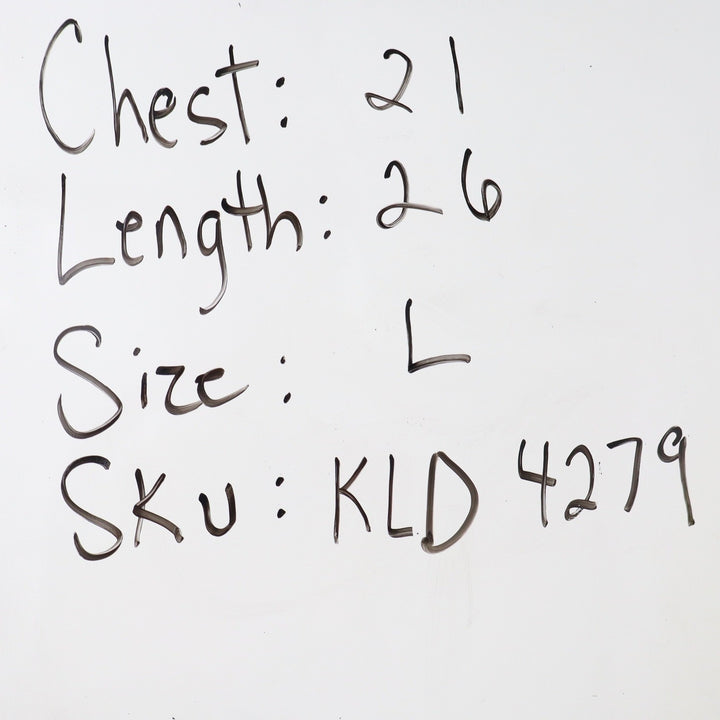 Chest: 21
Length: 26
Size: L
SKU: KLD 4279